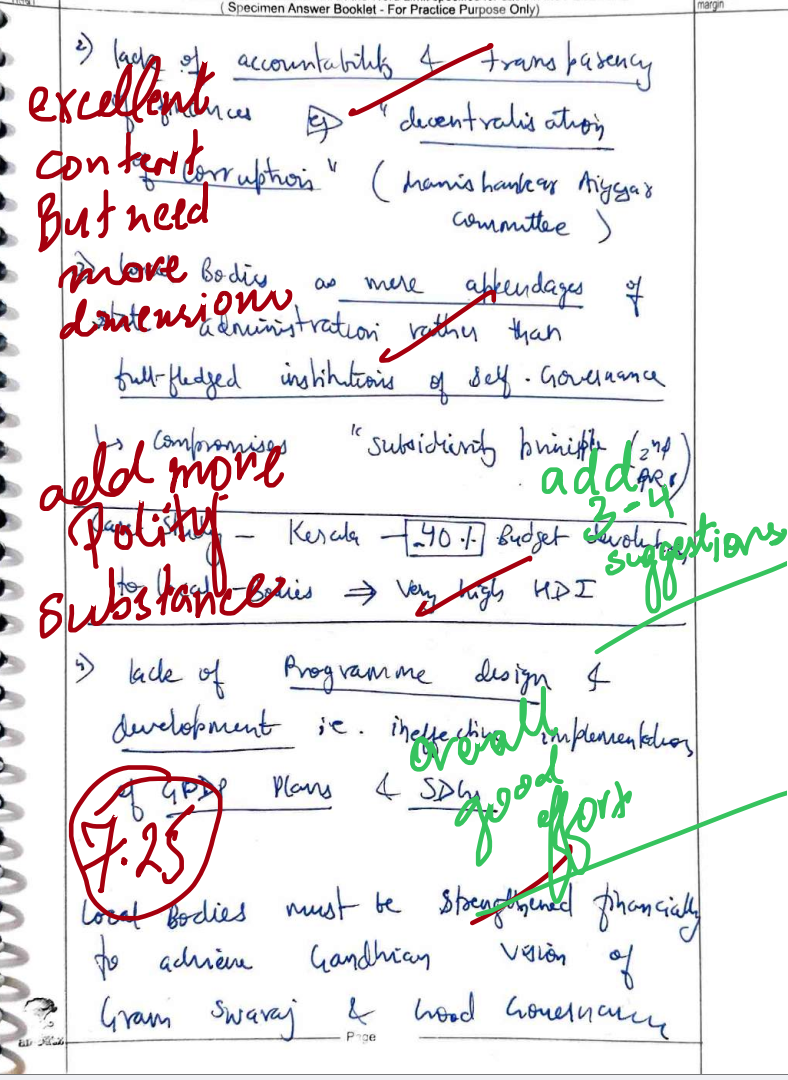 ( Specimen Answer Booklet - For Practice Purpose Only)
margin
2) lack of accountability & transparency
excellent
of finances eg "decentralisation
content
of Corruption" (Manishankar Aiyyar
But need
committee)
more
Bodies as mere appendages of
dimensions
state administration rather than
full-fledged institutions of Self-Governance
↳ Compromises "subsidiarity principle (2nd ARC)
add more
add
3-4
suggestions
Polity
Case Study - Kerala - 40% Budget devolution
substance
to local bodies ⇒ Very high HDI
4) lack of Programme design &
development i.e. ineffective implementation
overall
good
effort
of GPDP Plans & SDGs
7.25
Local Bodies must be strengthened financially
to achieve Gandhian vision of
Gram Swaraj & Good Governance
Page